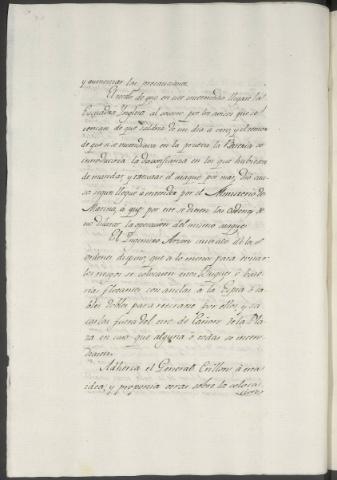 y aumentar las precauciones.
El recelo de que en este intermedio llegase la
Escuadra Inglesa al socorro por los avisos que se
tenian de que saldria de un dia a otro, y el temor
de que si se incendiava en la prueba la Bateria se
introduciria la desconfianza en los que havian
de mandar, y executar el ataque por mar, dio cau-
sa segun llegué à entender por el Ministerio de
Marina, à que por este se diesen las Ordenes de
no dilatar la operacion del mismo ataque.
El Ingeniero Arzon en vista de las
ordenes dispuso que à lo menos para evitar
los riesgos se colocasen estos Buques ò bate-
rias flotantes con anclas à la Espia y ca-
bles dobles para retirarse por ellos, y sa-
carlos fuera del tiro de Cañon de la Pla-
za en caso que alguna ò todas se incen-
diasen.
Adheria el General Crillon à esta
idea, y proponia otras sobre la coloca-
cion